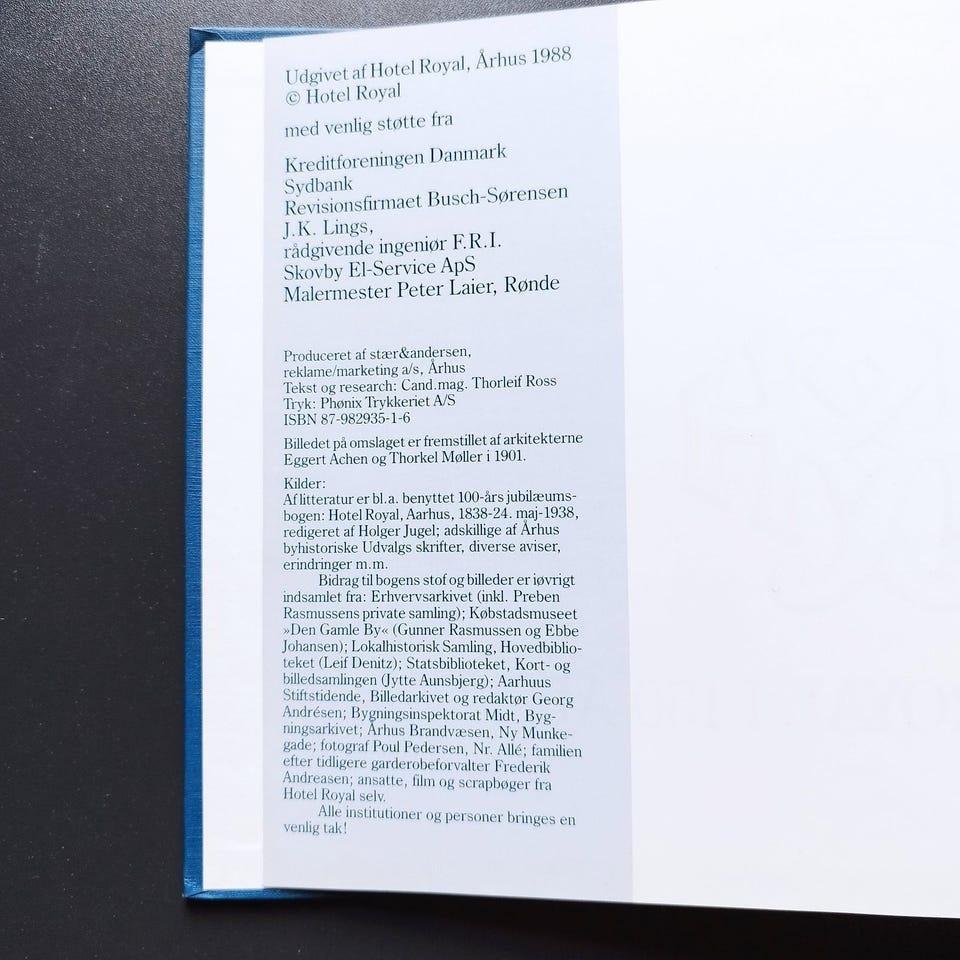 Udgivet af Hotel Royal, Århus 1988
© Hotel Royal
med venlig støtte fra
Kreditforeningen Danmark
Sydbank
Revisionsfirmaet Busch-Sørensen
J.K. Lings,
rådgivende ingeniør F.R.I.
Skovby El-Service ApS
Malermester Peter Laier, Rønde
Produceret af stær&andersen,
reklame/marketing a/s, Århus
Tekst og research: Cand.mag. Thorleif Ross
Tryk: Phønix Trykkeriet A/S
ISBN 87-982935-1-6
Billedet på omslaget er fremstillet af arkitekterne
Eggert Achen og Thorkel Møller i 1901.
Kilder:
Af litteratur er bl.a. benyttet 100-års jubilæums-
bogen: Hotel Royal, Aarhus, 1838-24. maj-1938,
redigeret af Holger Jugel; adskillige af Århus
byhistoriske Udvalgs skrifter, diverse aviser,
erindringer m.m.
Bidrag til bogens stof og billeder er iøvrigt
indsamlet fra: Erhvervsarkivet (inkl. Preben
Rasmussens private samling); Købstadsmuseet
»Den Gamle By« (Gunner Rasmussen og Ebbe
Johansen); Lokalhistorisk Samling, Hovedbiblio-
teket (Leif Denitz); Statsbiblioteket, Kort- og
billedsamlingen (Jytte Aunsbjerg); Aarhuus
Stiftstidende, Billedarkivet og redaktør Georg
Andrésen; Bygningsinspektorat Midt, Byg-
ningsarkivet; Århus Brandvæsen, Ny Munke-
gade; fotograf Poul Pedersen, Nr. Allé; familien
efter tidligere garderobeforvalter Frederik
Andreasen; ansatte, film og scrapbøger fra
Hotel Royal selv.
Alle institutioner og personer bringes en
venlig tak!